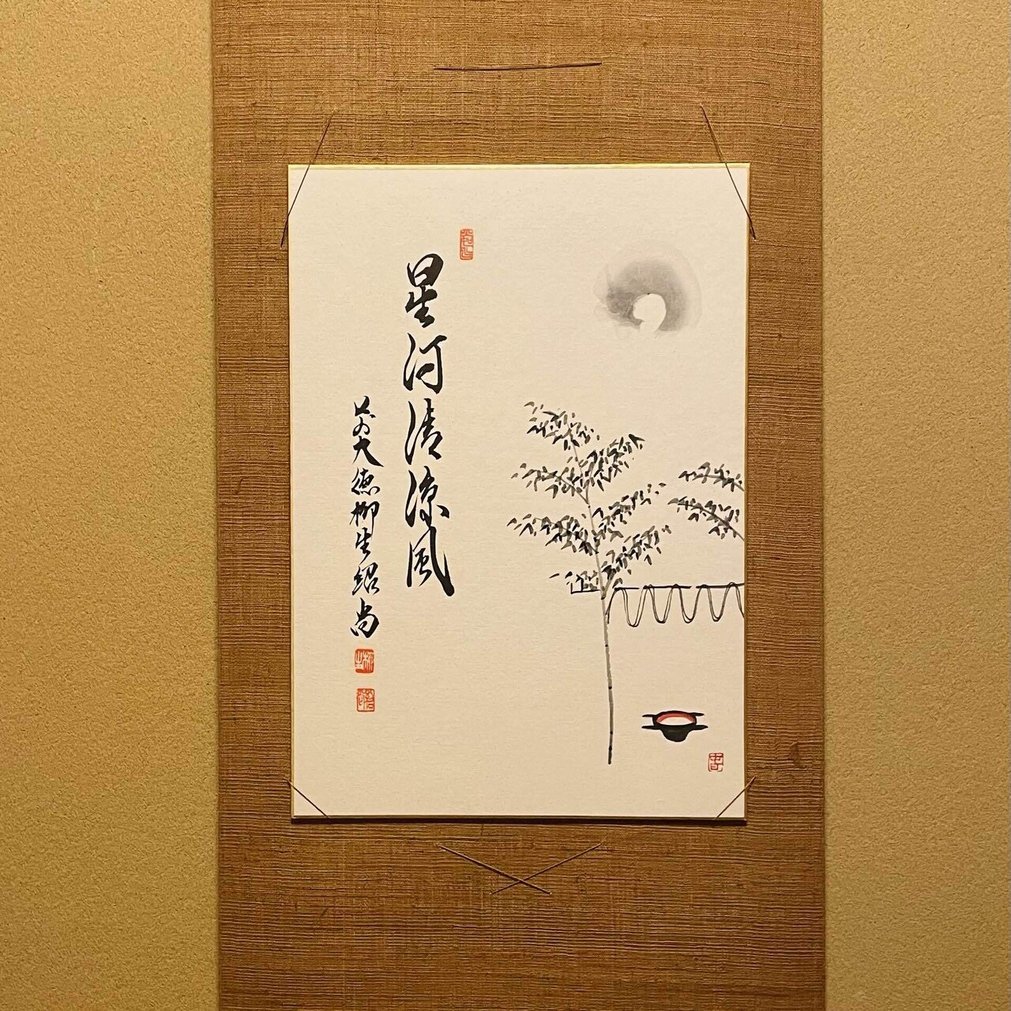 星河清涼風
前大徳柳生紹尚